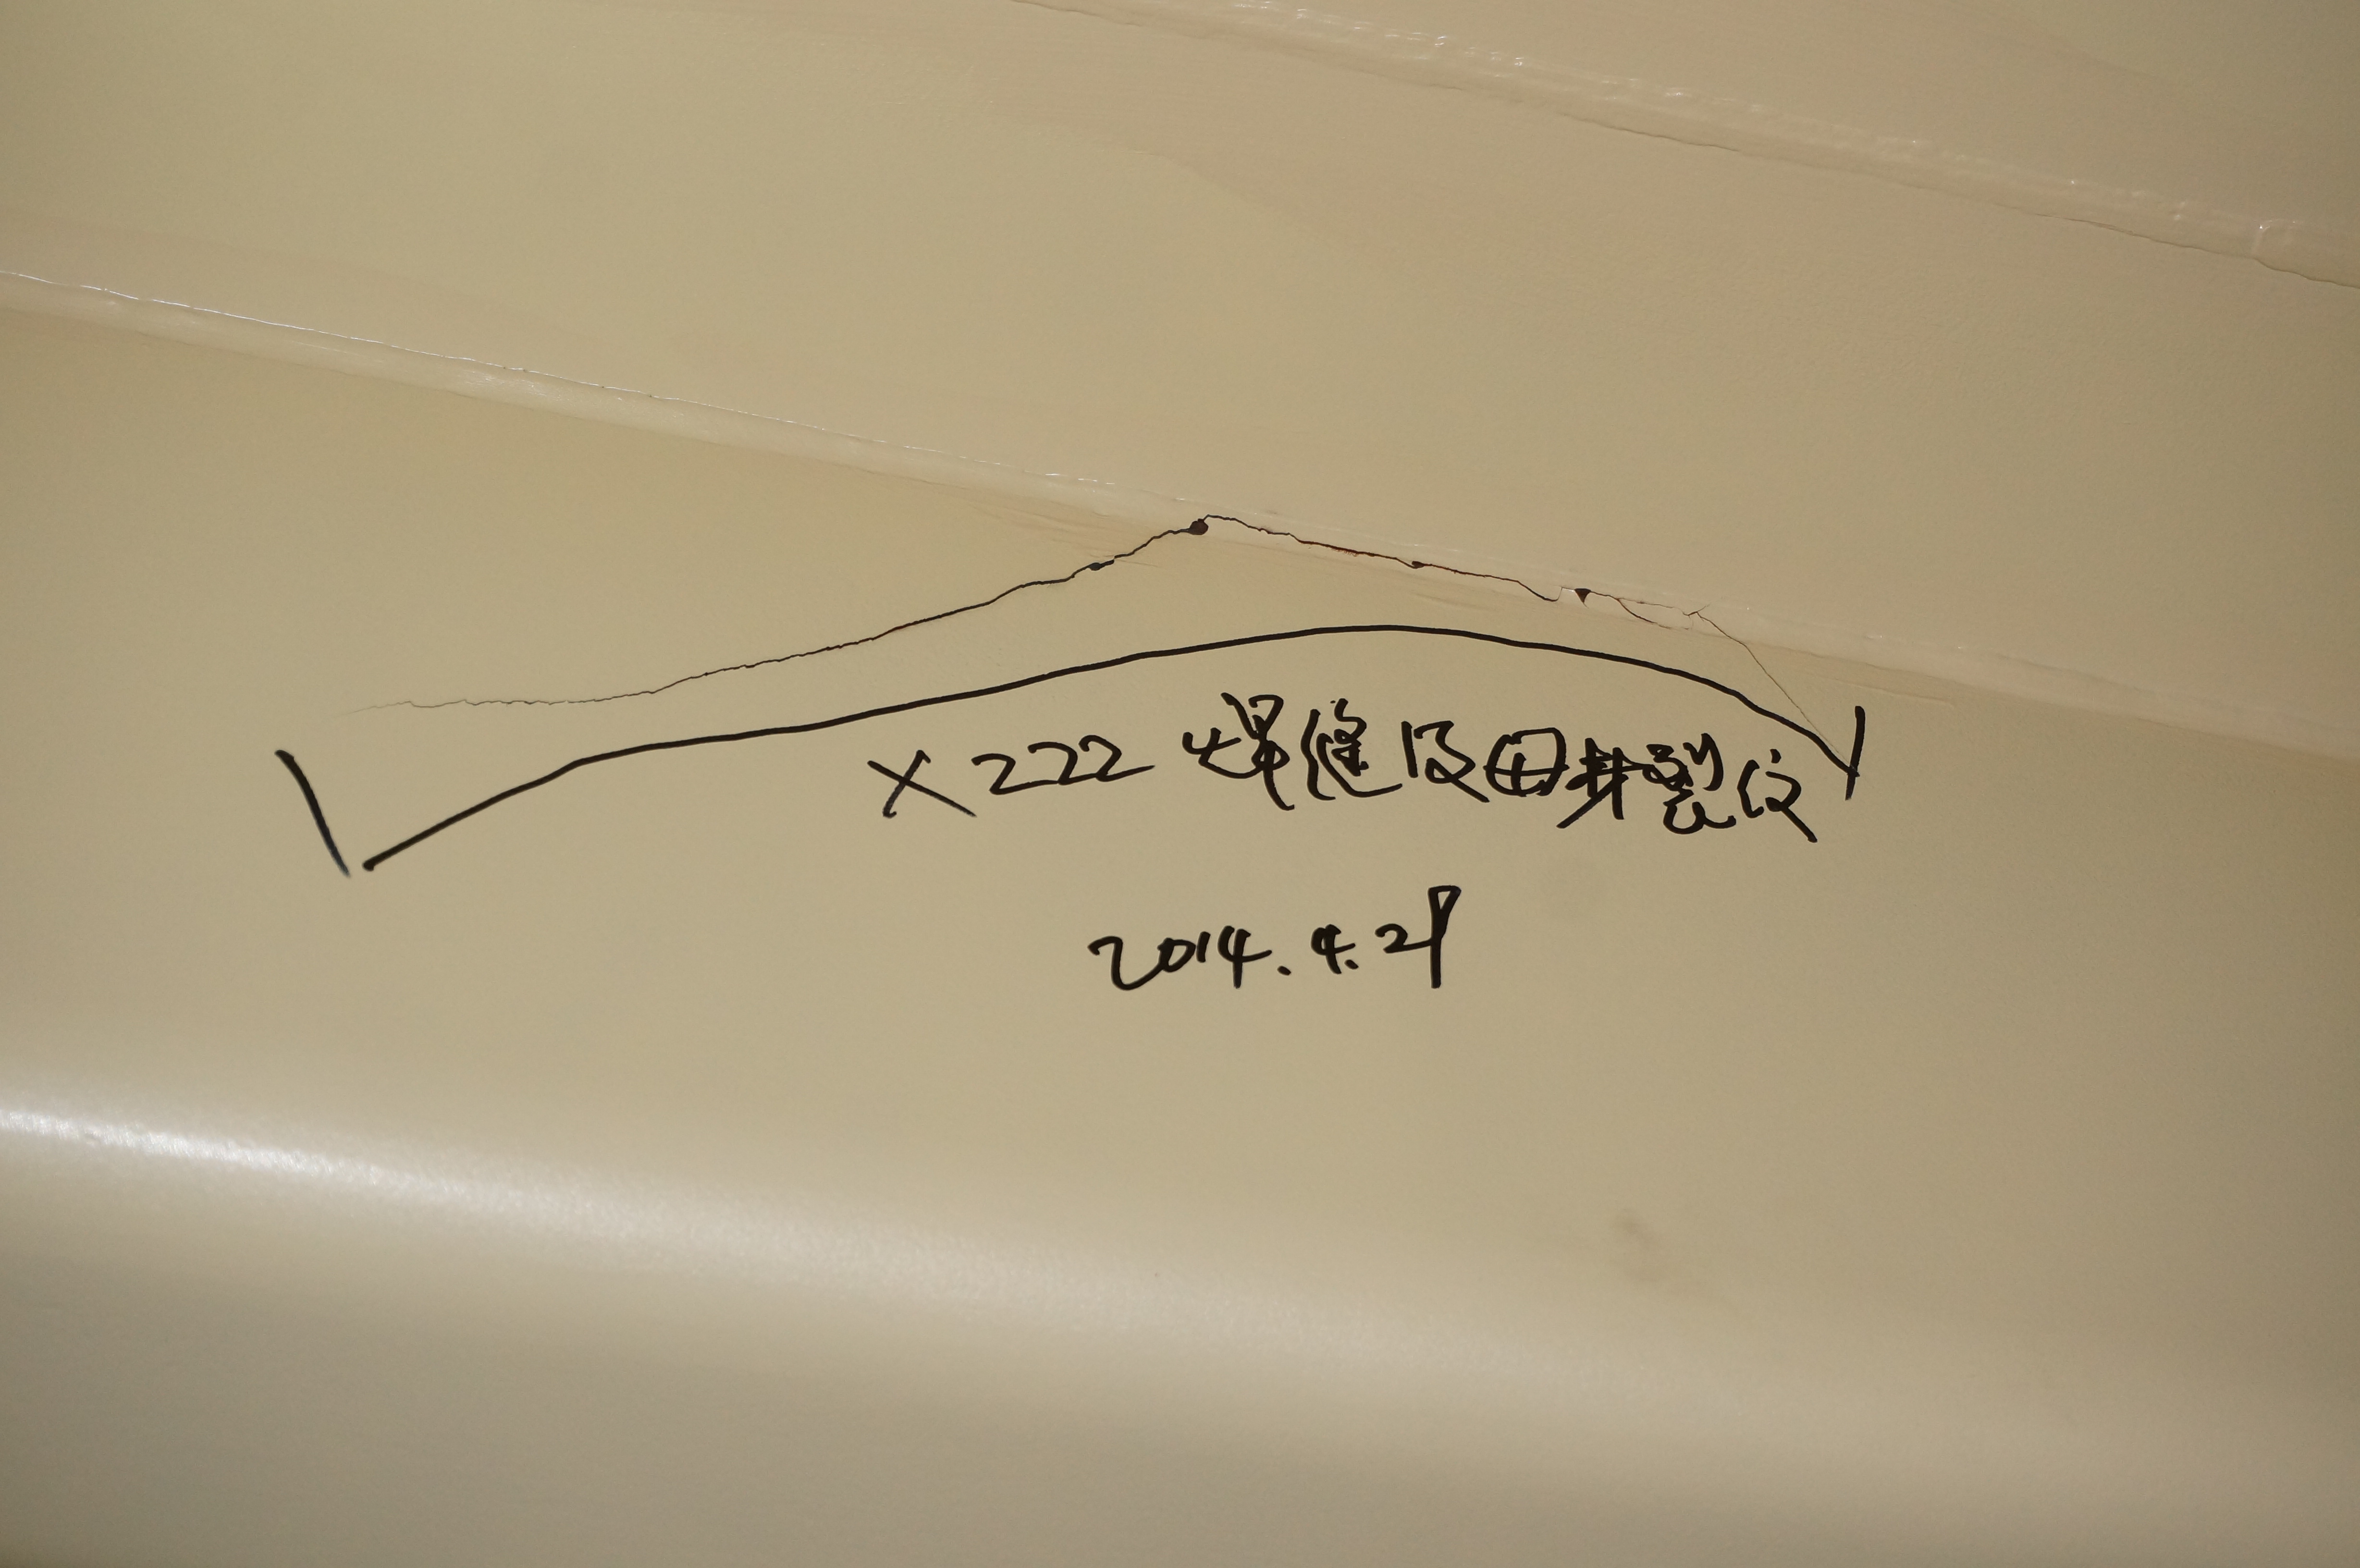 X222 焊缝及母材裂纹
2014.4.29